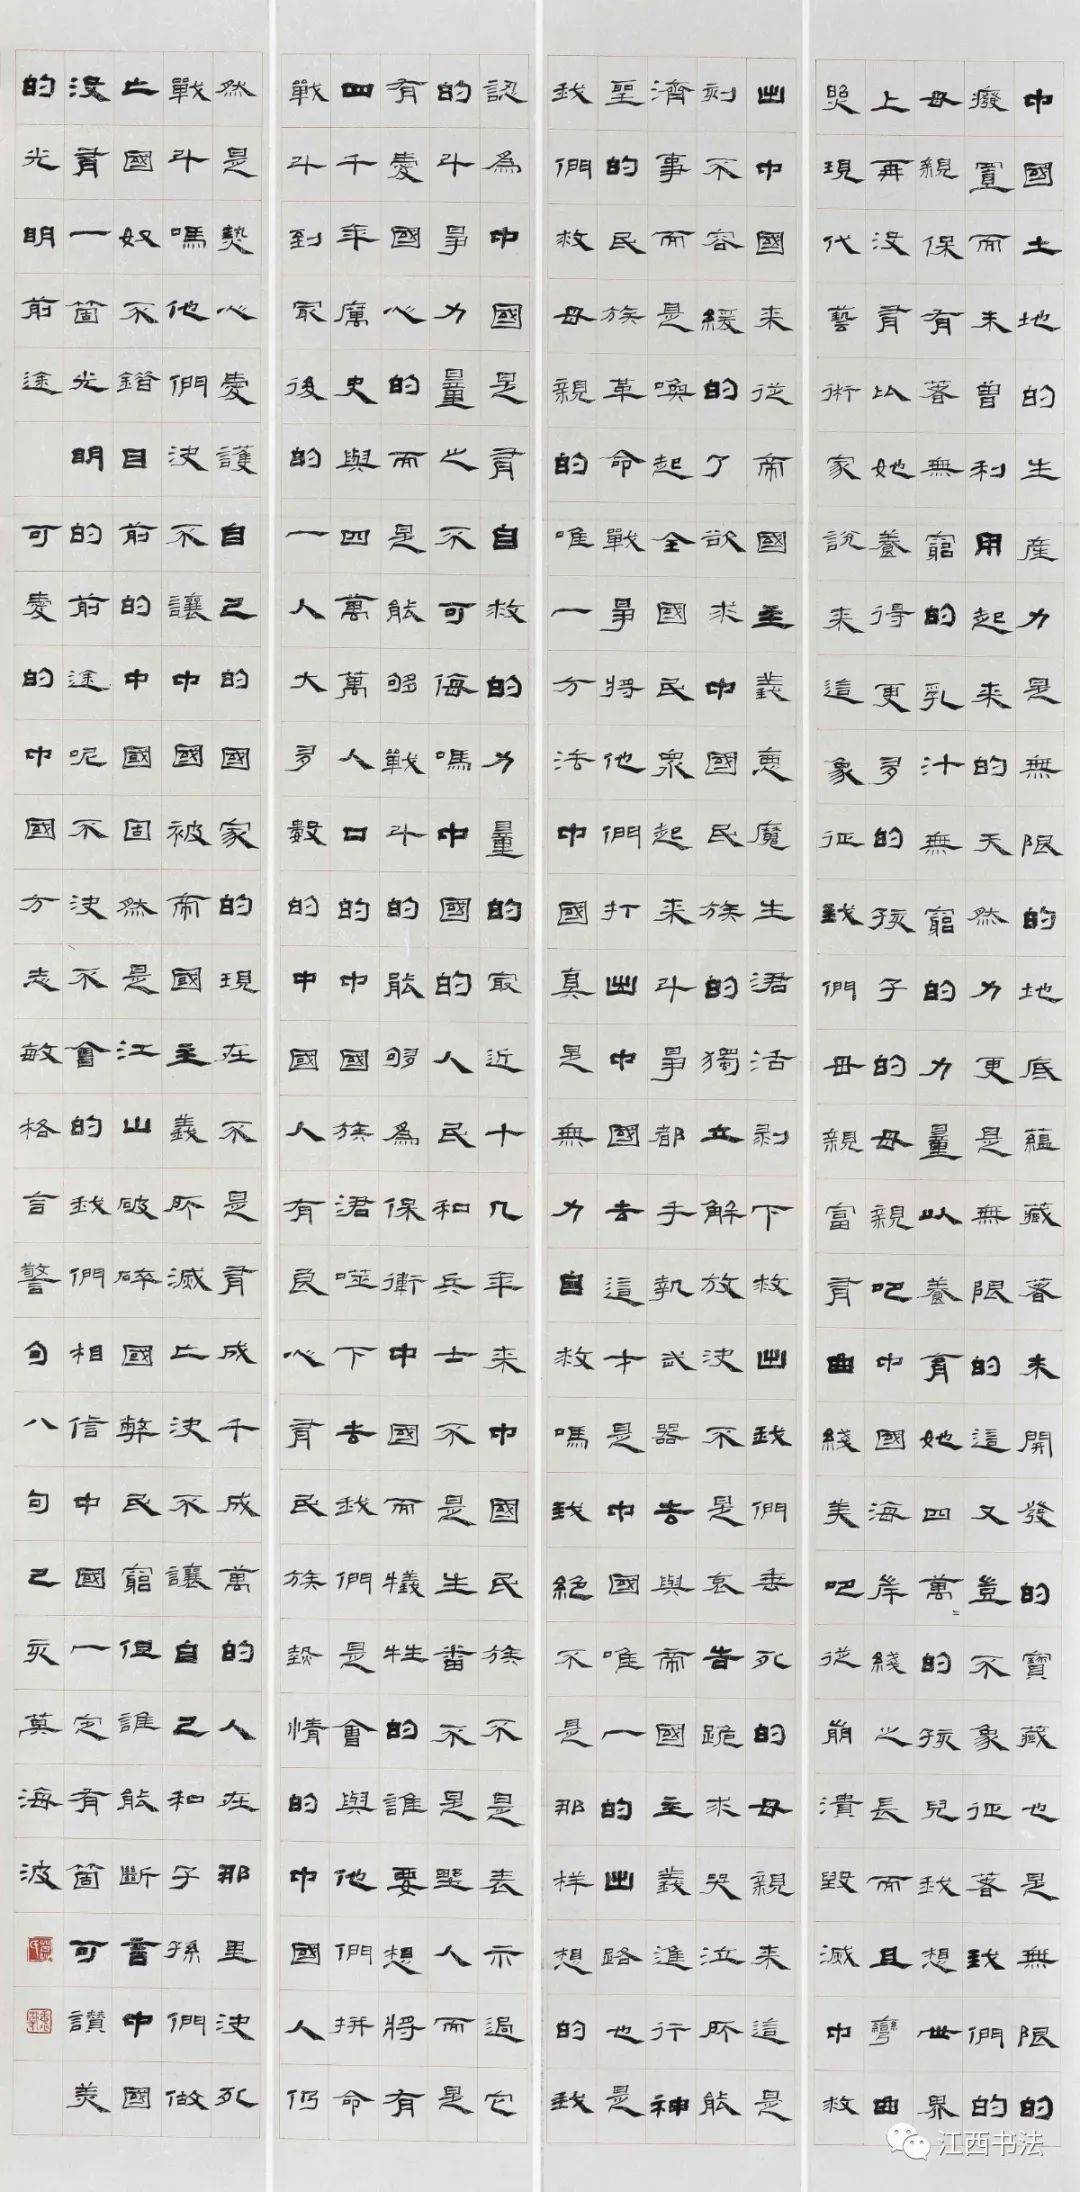 中國土地的生產力是無限的地底蘊藏着未開發的寶藏也是無限的
廢置而未曾利用起来的天然力更是無限的這又豈不象征着我們的
母親保有着無窮的乳汁無窮的力量以養育她四萬〻的孩兒我想世界
上再沒有比她養得更多的孩子的母親吧中國海岸綫之長而且彎曲
照現代藝術家說来這象征我們母親富有曲綫美吧從崩潰毀滅中救
出中國来從帝國主義惡魔生涒活剥下救出我們垂死的母親来這是
刻不容緩的了欲求中國民族的獨立解放決不是哀告跪求哭泣所能
濟事而是喚起全國民衆起来斗爭都手執武器去與帝國主義進行神
聖的民族革命戰爭將他們打出中國去這才是中國唯一的出路也是
我們救母親的唯一方法中國真是無力自救嗎我絕不是那样想的我
認為中國是有自救的力量的最近十几年来中國民族不是表示過它
的斗爭力量之不可侮嗎中國的人民和兵士不是生番不是野人而是
有愛國心的而是能够戰斗的能够為保衛中國而犧牲的誰要想將有
四千年歷史與四萬萬人口的中國族涒噬下去我們是會與他們拼命
戰斗到最後的一人大多數的中國人有良心有民族熱情的中國人仍
然是熱心愛護自己的國家的現在不是有成千成萬的人在那里決死
戰斗嗎他們決不讓中國被帝國主義所滅亡決不讓自己和子孫們做
亡國奴不錯目前的中國固然是江山破碎國弊民窮但誰能斷言中國
沒有一箇光明的前途呢不決不會的我們相信中國一定有箇可讚美
的光明前途可愛的中國方志敏格言警句八句己亥莫海波
江西书法